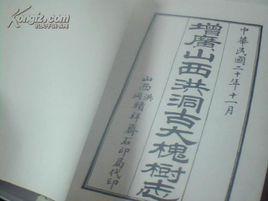 Kongfz.com
中華民國二十年十一月
增廣山西洪洞古大槐樹志
山西洪洞積祥齋石印局代印